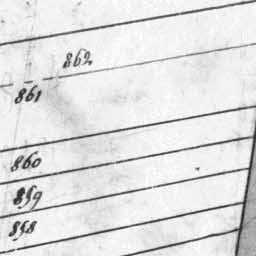 862
861
860
859
858